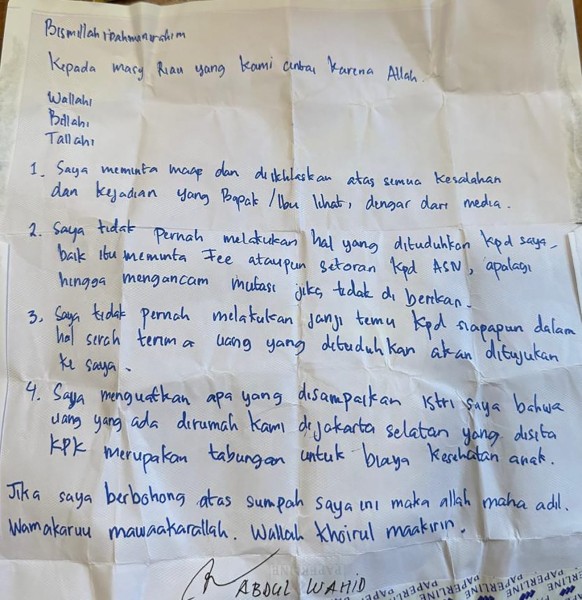 Bismillahirahmanirahim
Kepada masy Riau yang kami cintai karena Allah.
Wallahi
Billahi
Tallahi
1. Saya meminta maap dan diikhlaskan atas semua kesalahan
dan kejadian yang Bapak / Ibu lihat, dengar dari media.
2. Saya tidak pernah melakukan hal yang dituduhkan kpd saya
baik itu meminta Fee ataupun setoran kpd ASN, apalagi
hingga mengancam mutasi jika tidak di berikan.
3. Saya tidak pernah melakukan janji temu kpd siapapun dalam
hal serah terima uang yang dituduhkan akan ditujukan
ke saya.
4. Saya menguatkan apa yang disampaikan istri saya bahwa
uang yang ada dirumah kami dijakarta selatan yang disita
KPK merupakan tabungan untuk biaya kesehatan anak.
Jika saya berbohong atas sumpah saya ini maka allah maha adil.
Wamakaruu mawaakarallah. Wallah khoirul maakirin.
ABDUL WAHID
PAPERLINE PAPERLINE PAPERLINE